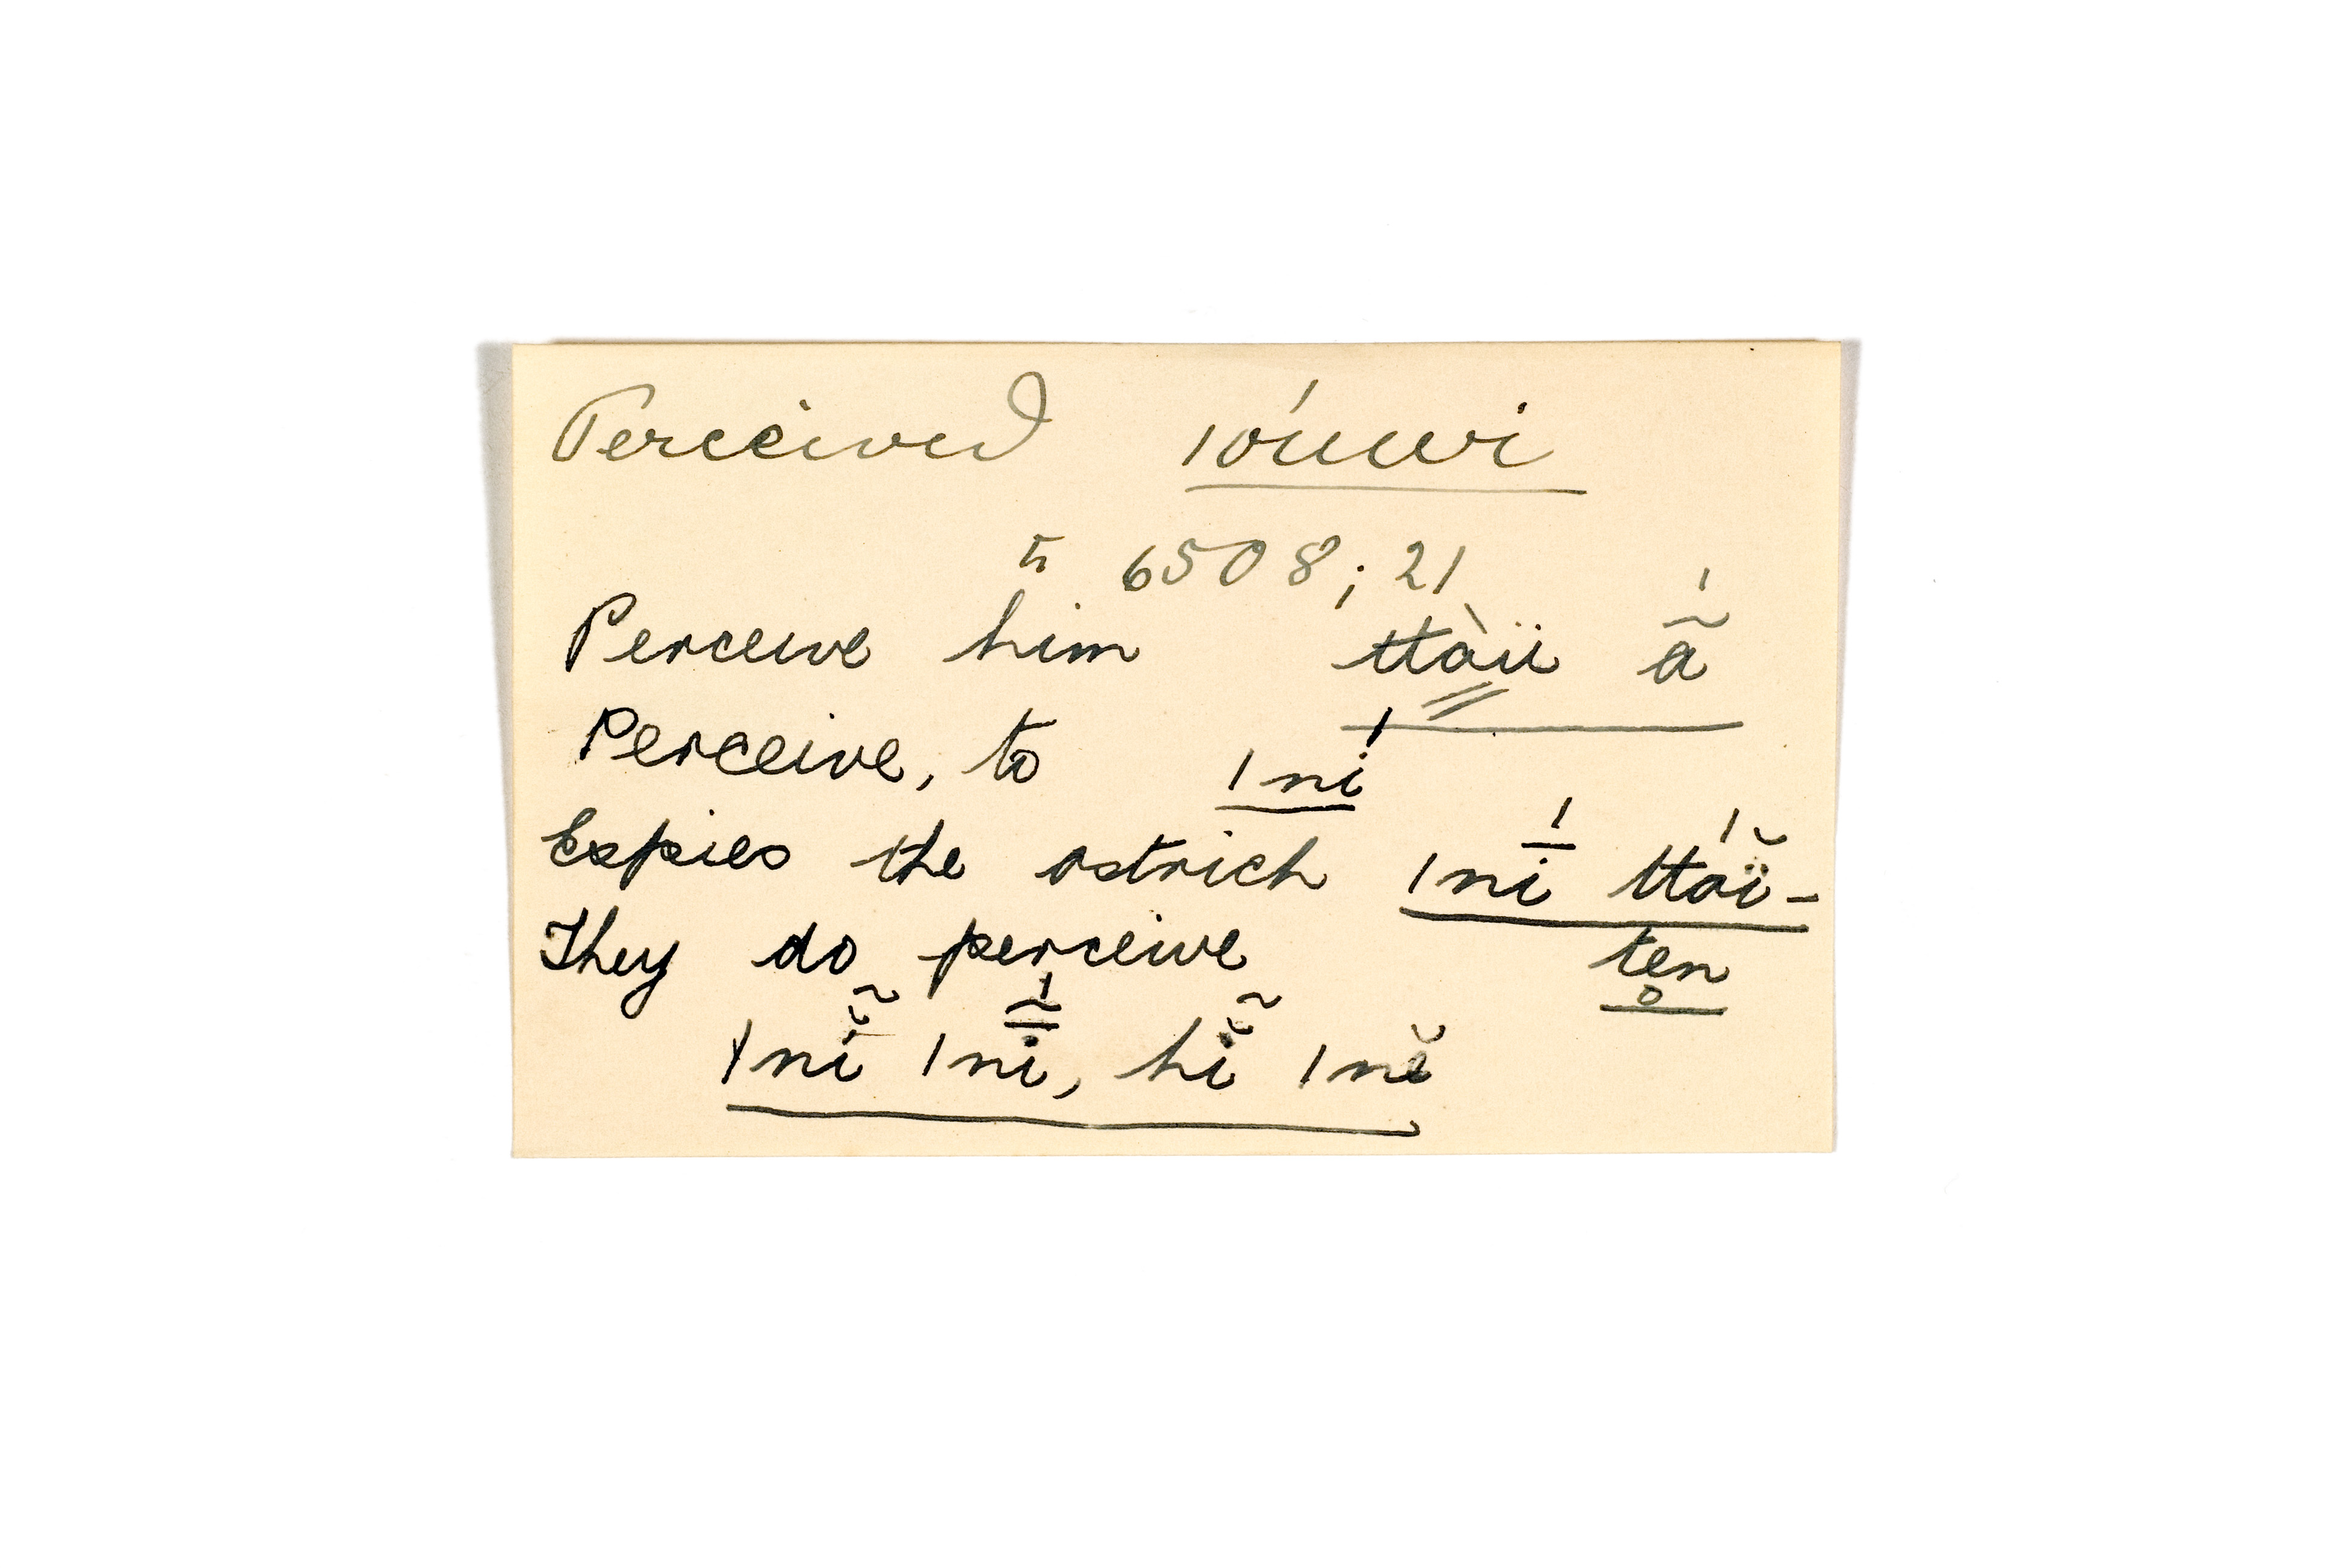 Perceived ǀóuwi
ħ 6508; 21
Perceive him ttòïï ã́
Perceive, to ǀní
Espies the ostrich ǀnī́ ttóï̆-
They do perceive ten̥
ǀnĭ̃ ǀnḭ̄́, hĭ̃ ǀnĕ